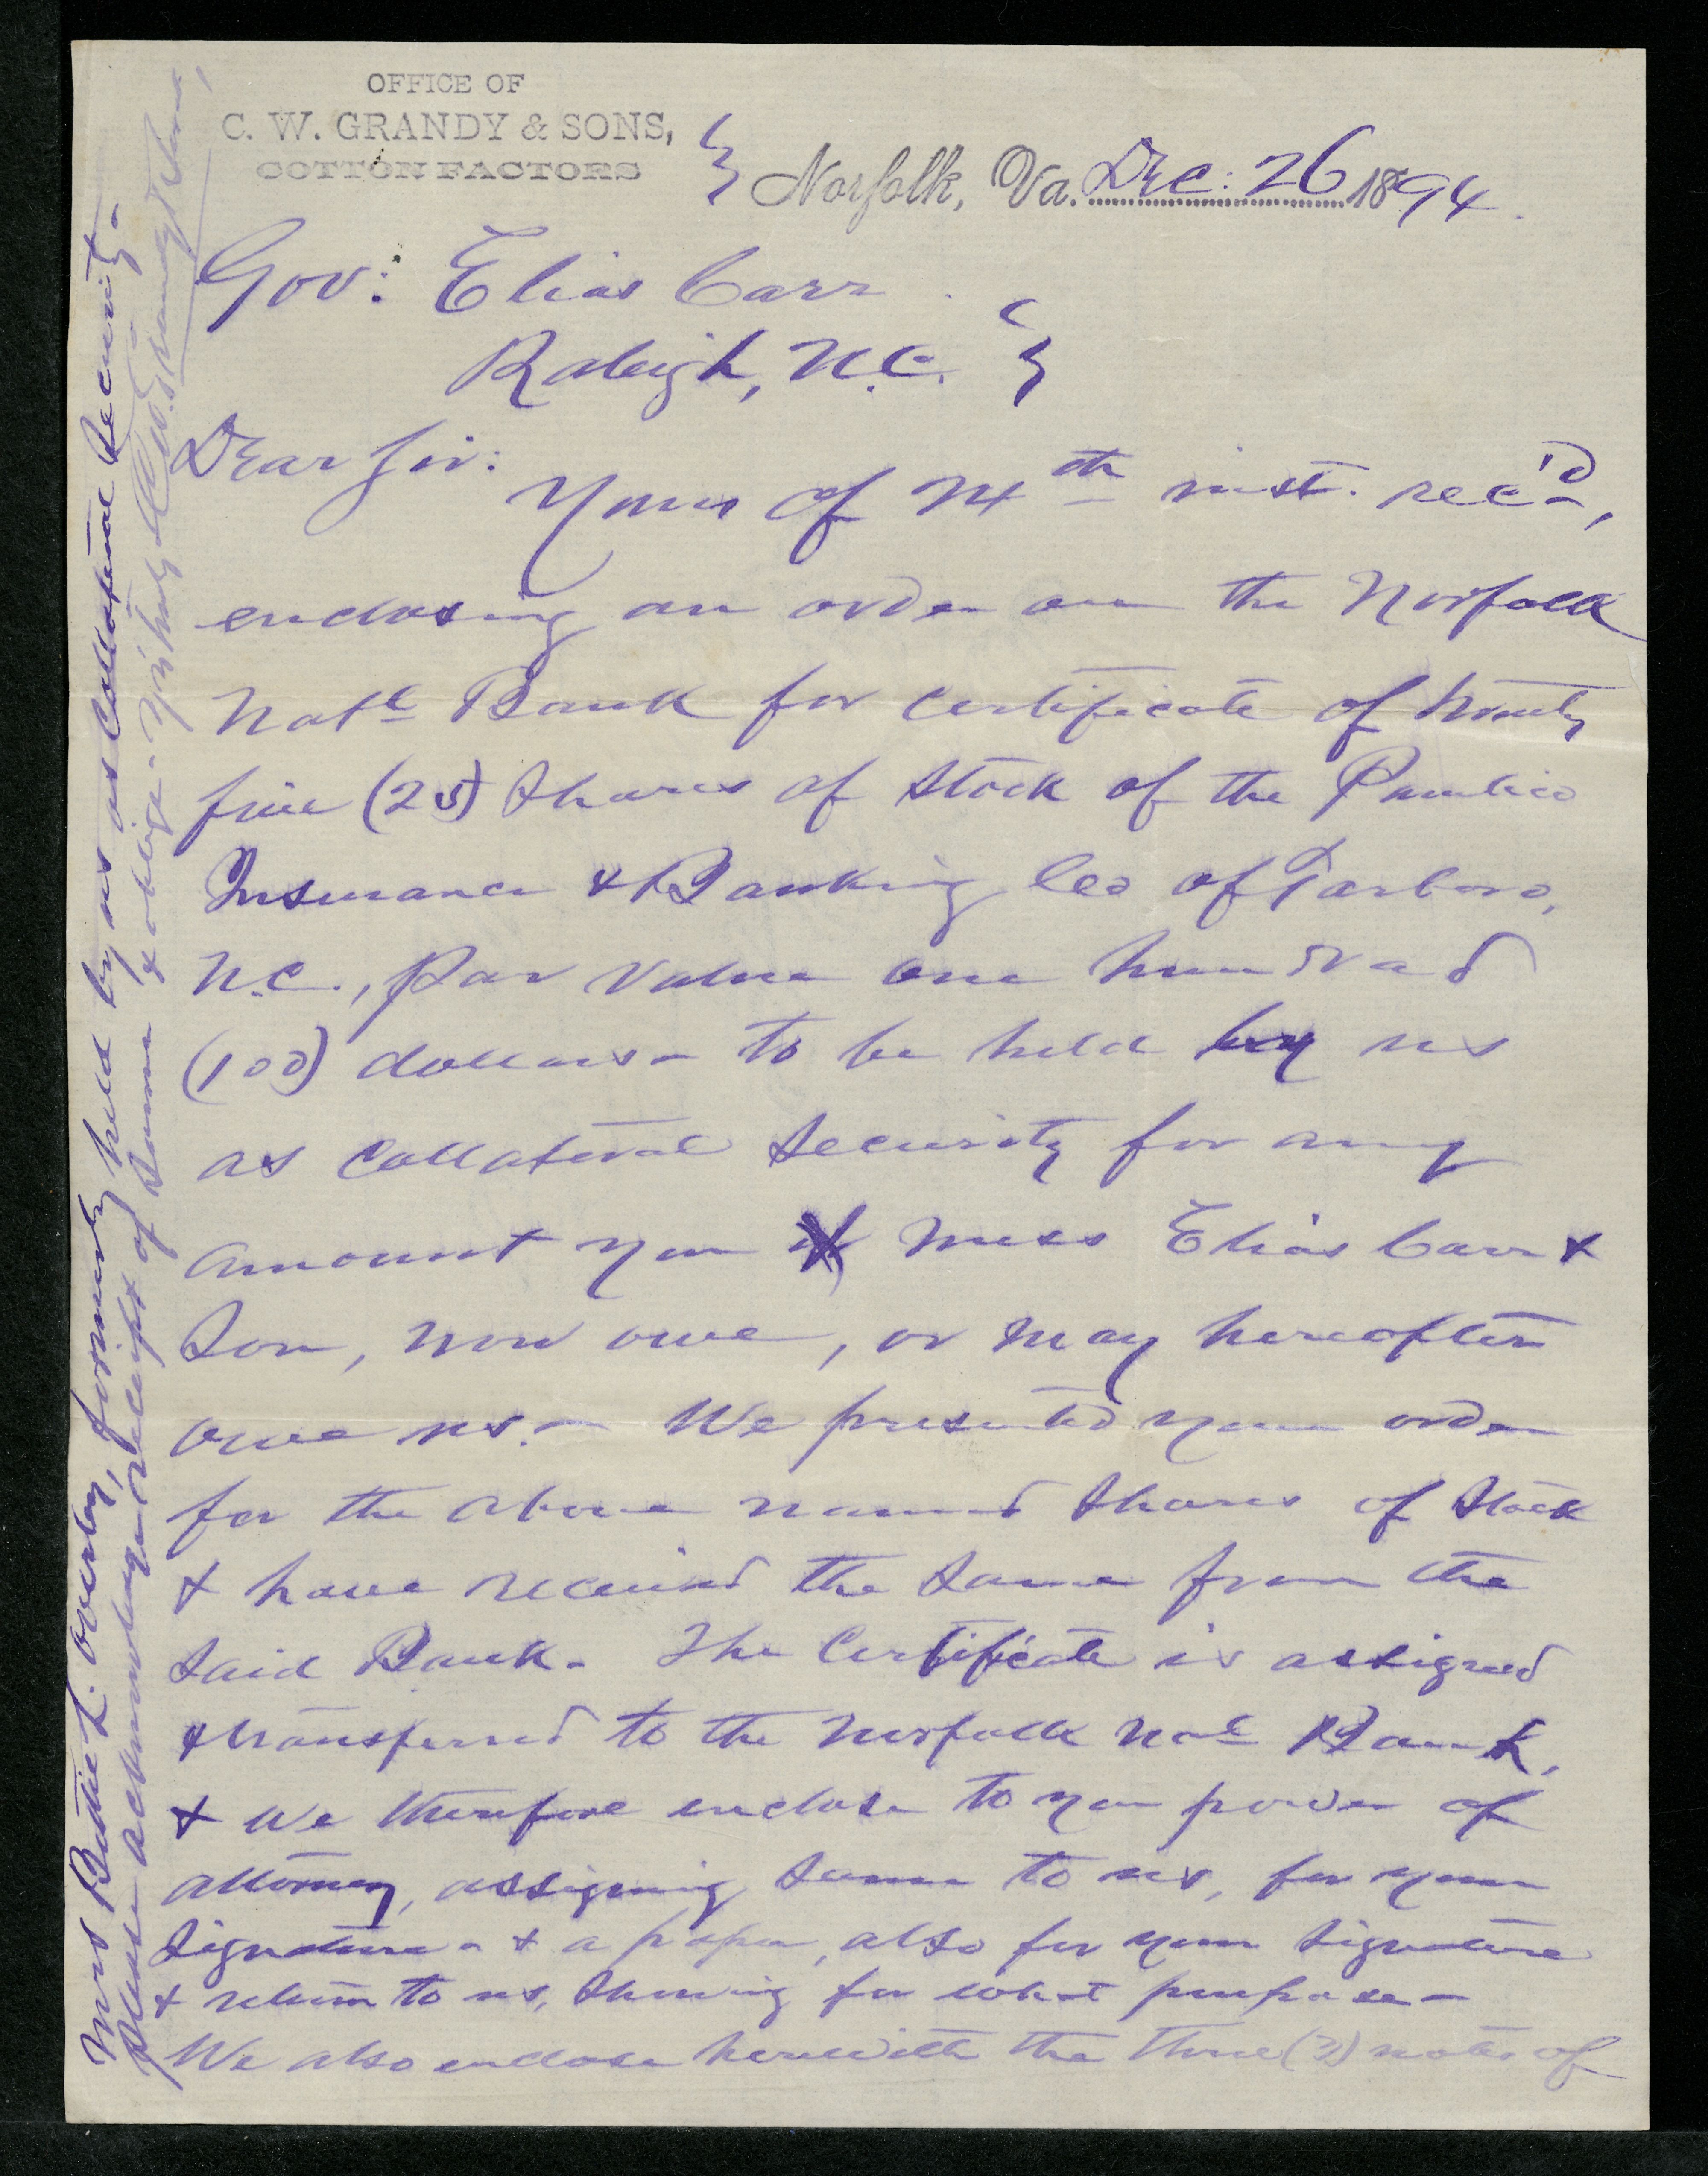 OFFICE OF
C. W. GRANDY & SONS,
COTTON FACTORS
Norfolk, Va. Dec: 26 1894.
Gov: Elias Carr
Raleigh, N.C.
Dear Sir:
Yours of 24th inst. rec'd,
enclosing an order on the Norfolk
Natl Bank for certificate of twenty
five (25) Shares of Stock of the Pamlico
Insurance & Banking Co of Tarboro,
N.C., Par value one hundred
(100) dollars - to be held by us
as Collateral Security for any
amount you or Mess Elias Carr &
Son, now owe, or may hereafter
owe us. - We presented your order
for the above named Shares of Stock
& have received the Same from the
Said Bank - The Certificate is assigned
& transferred to the Norfolk Natl Bank,
& We therefore enclose to you power of
attorney, assigning Same to us, for your
Signature - & a paper, also for your Signature
& return to us, Showing for what purpose -
We also enclose herewith the three (3) notes of
Mrs Bettie L. Overby, formerly held by us as Collateral Security -
Please acknowledge receipt of Same & oblige - Yrs truly C W Grandy & Sons,